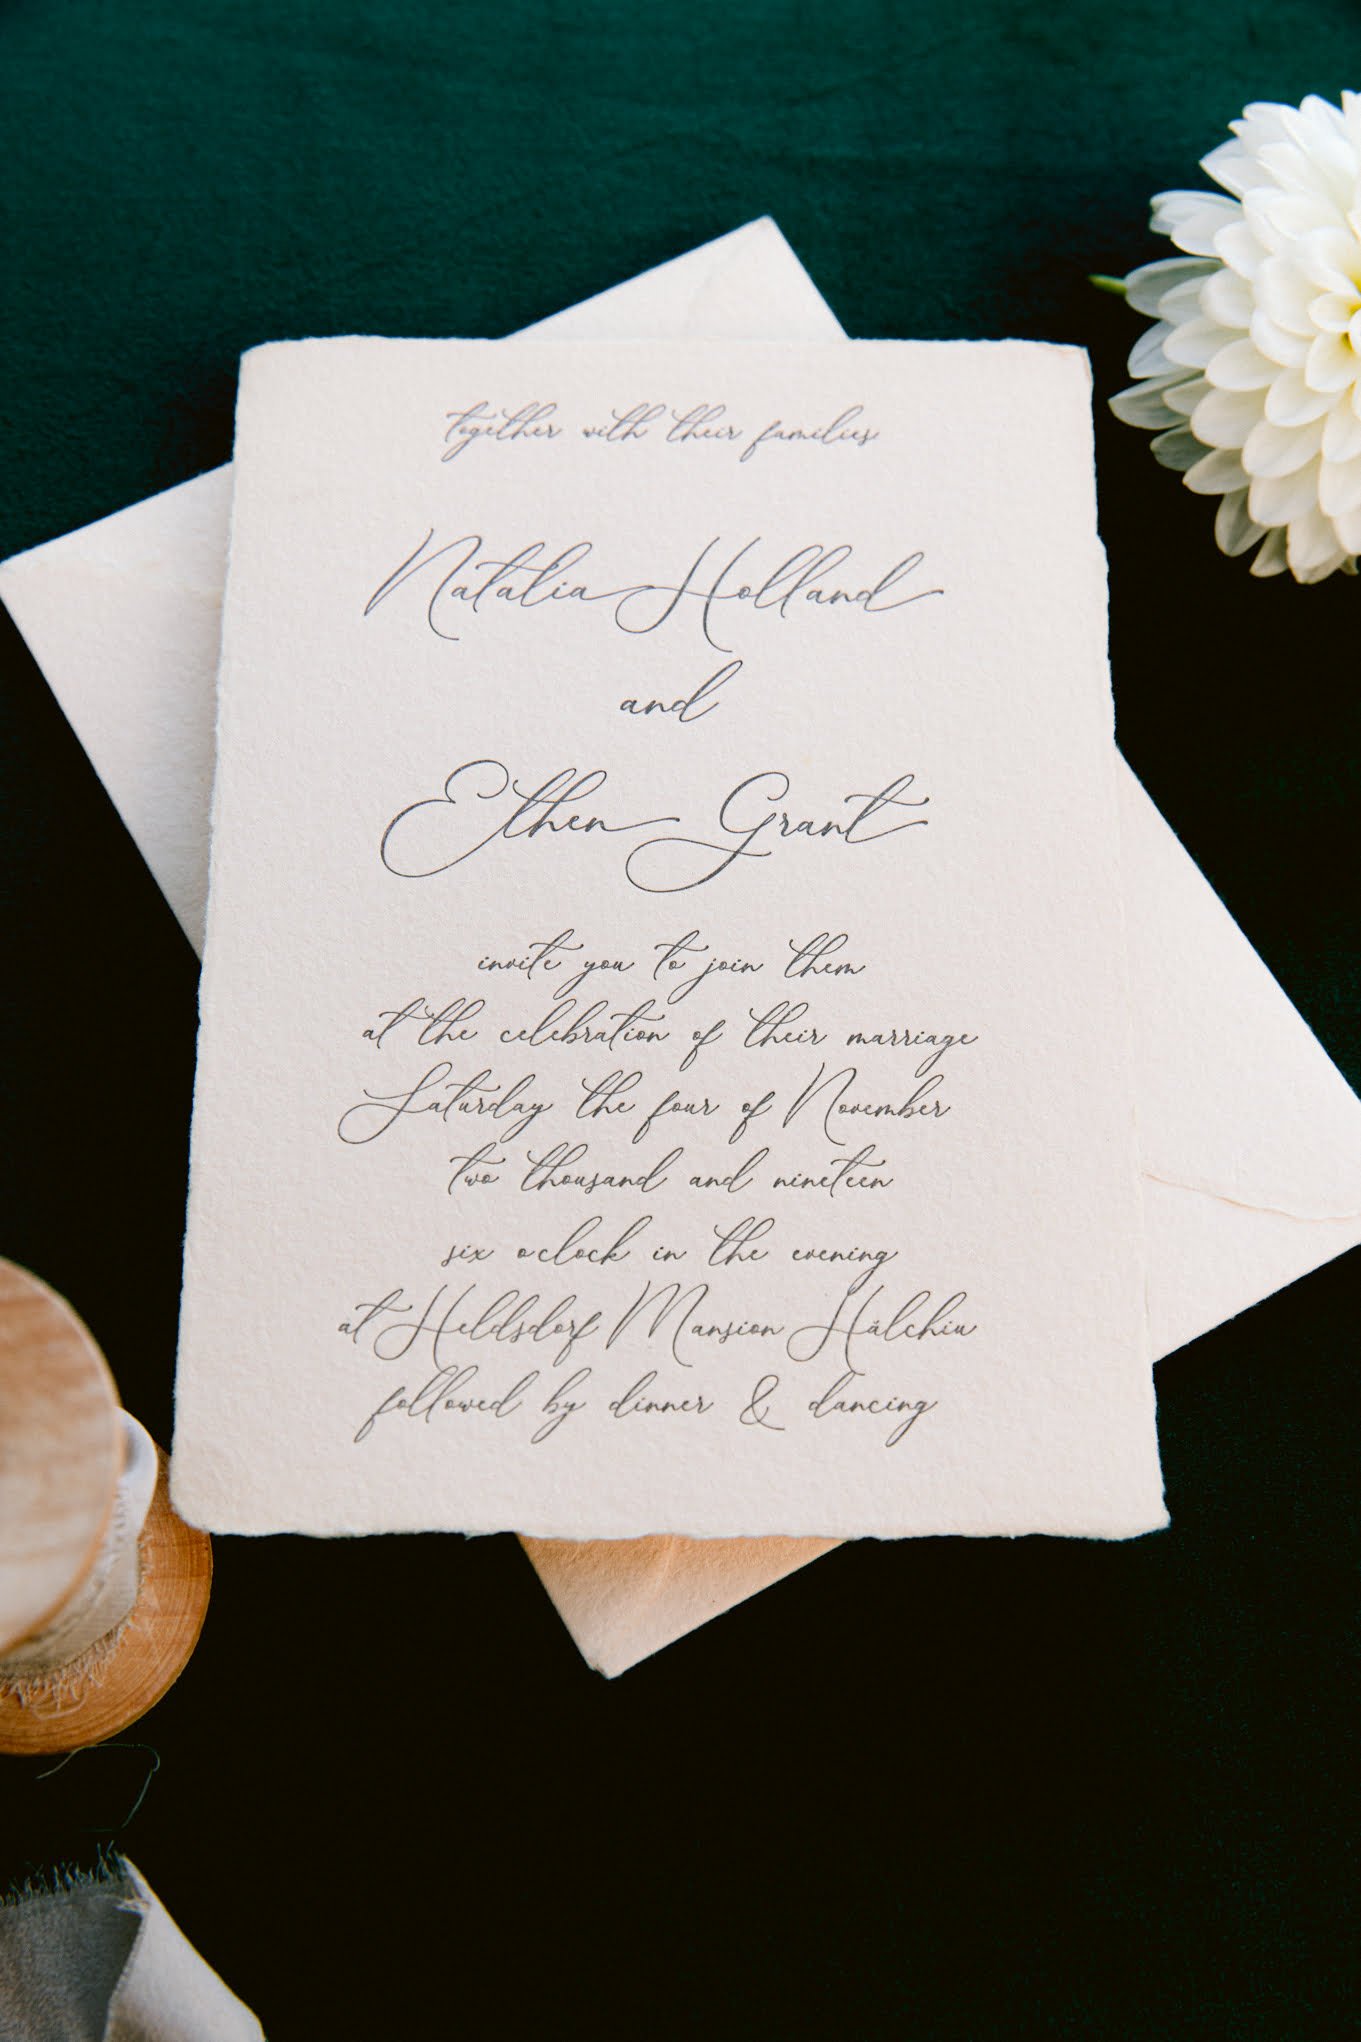 together with their families
Natalia Holland
and
Ethen Grant
invite you to join them
at the celebration of their marriage
Saturday the four of November
two thousand and nineteen
six oclock in the evening
at Heldsdorf Mansion Hălchiu
followed by dinner & dancing